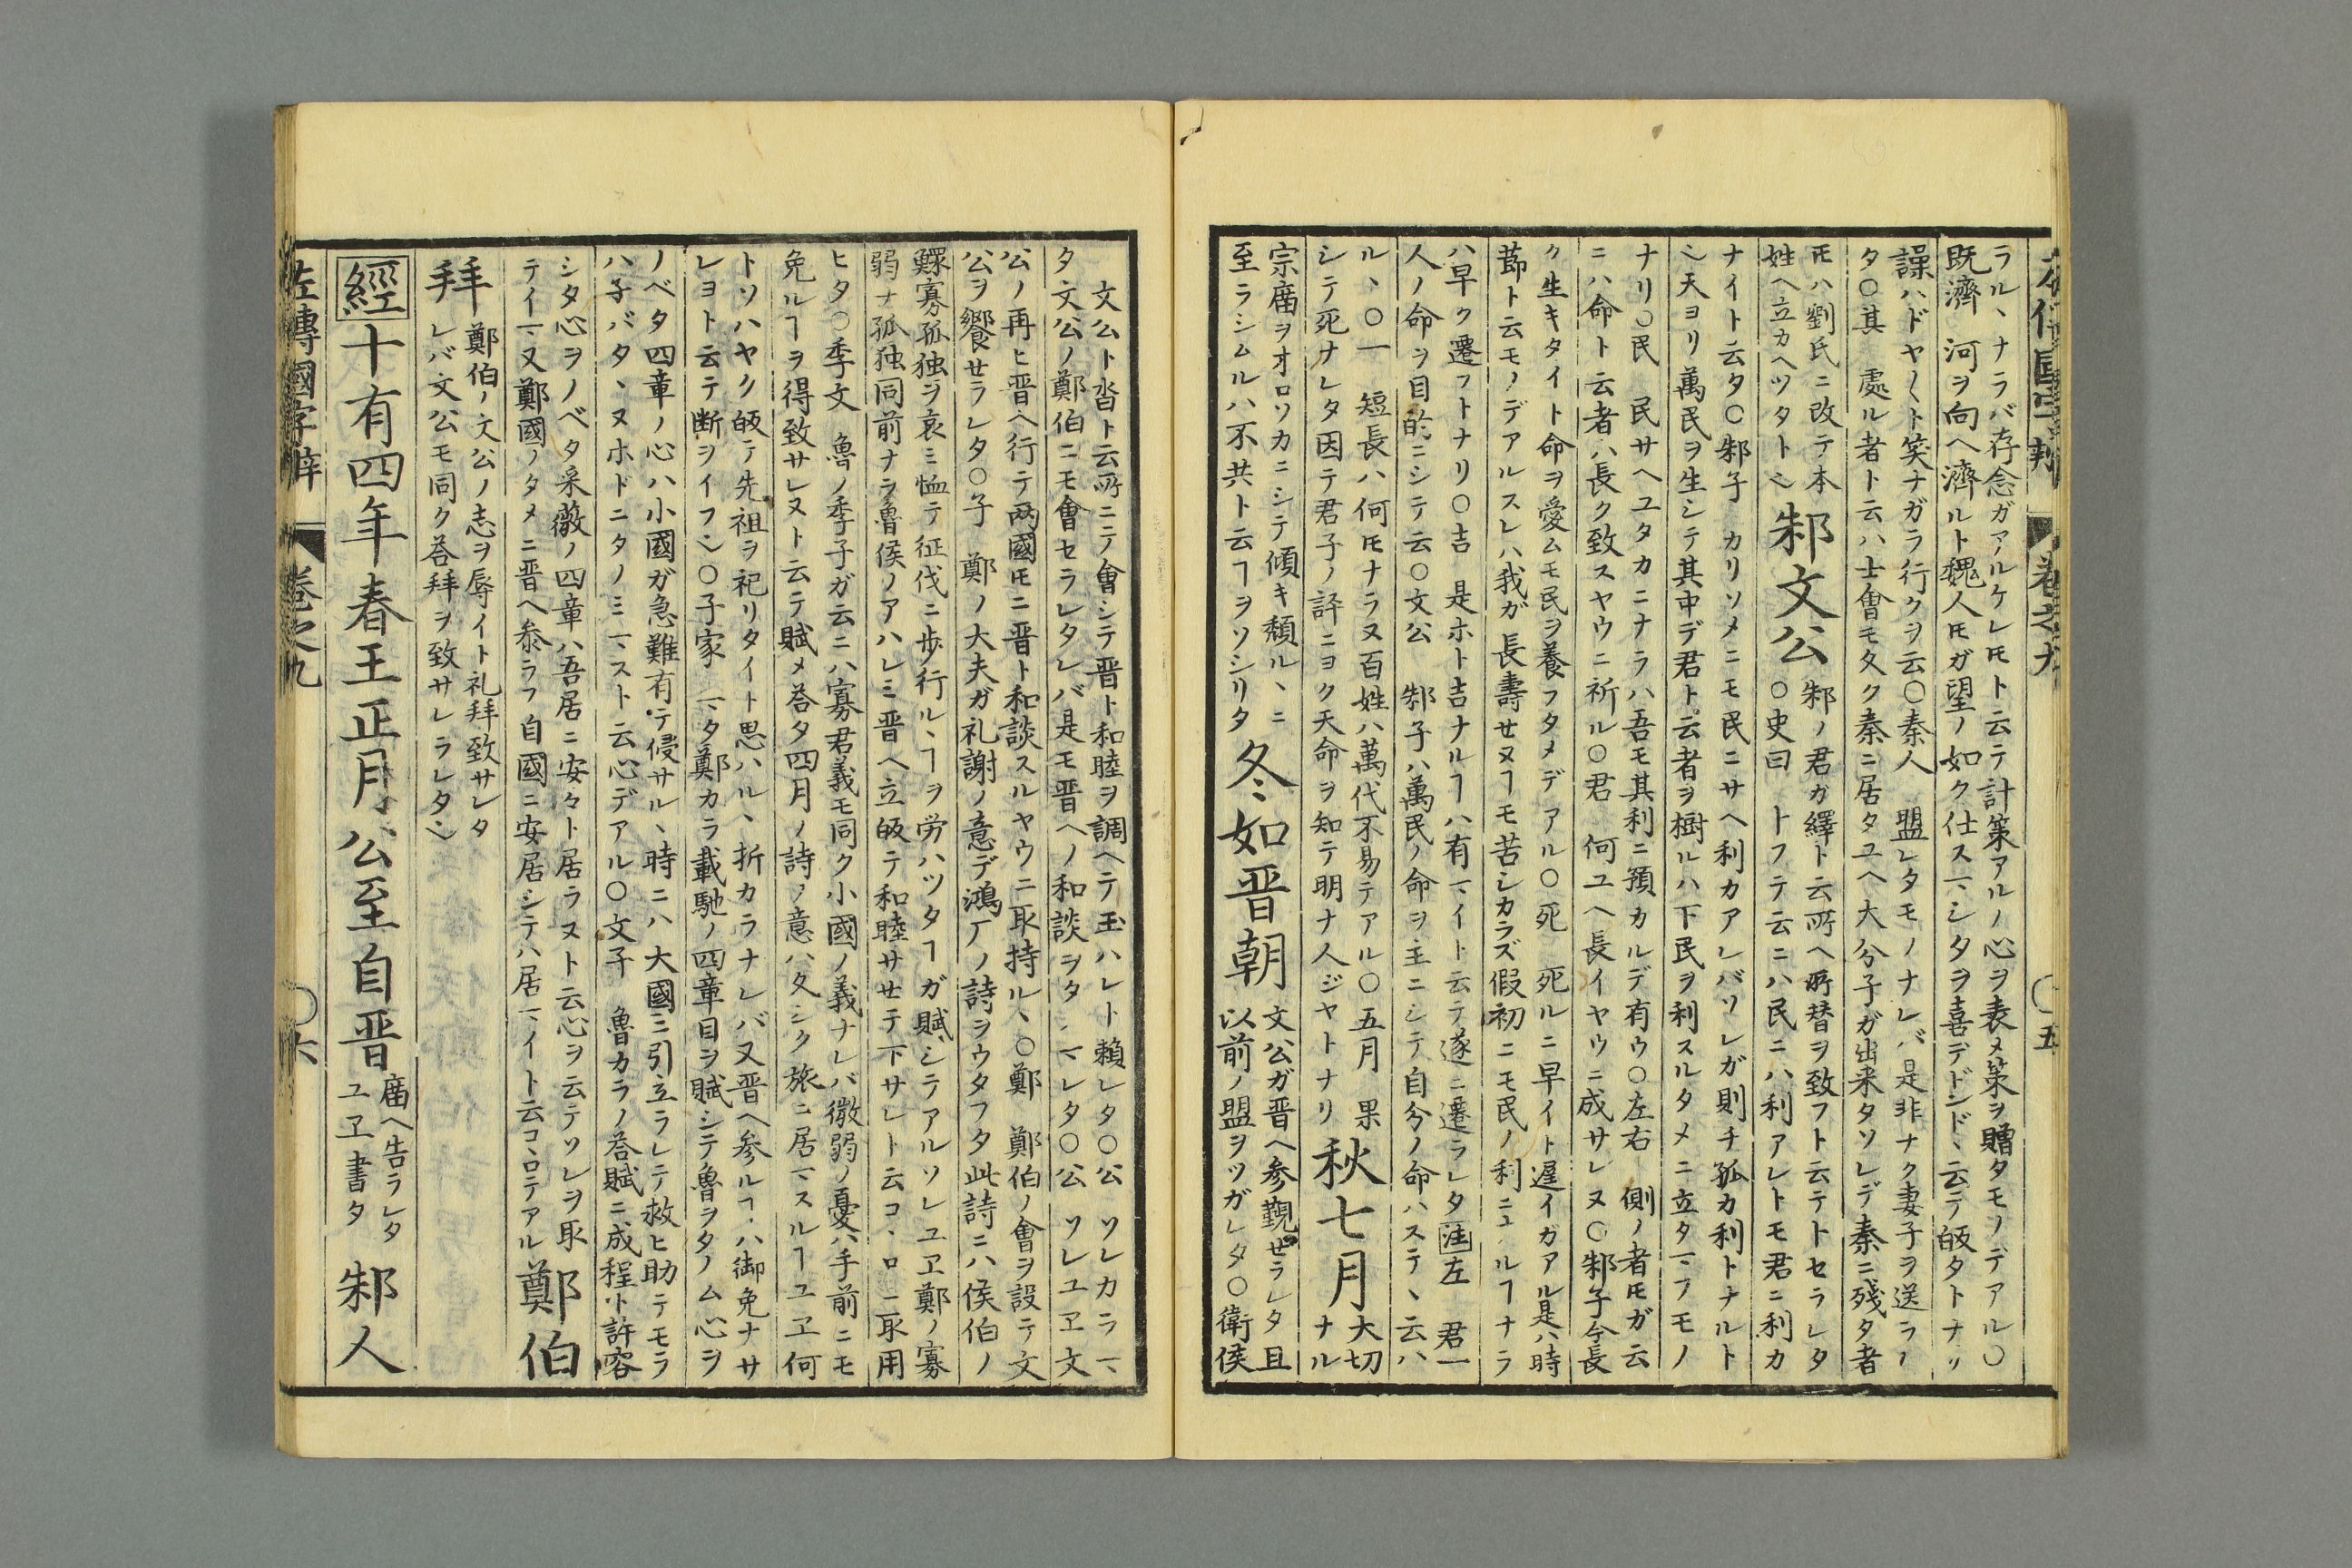 左傳國字辨 巻之九 ○五
ラル、ナラバ存念ガアルケレ𪜈ト云テ計策アルノ心ヲ表メ策ヲ贈タモノデアル○
既濟 河ヲ向ヘ濟ルト魏人𪜈ガ望ノ如ク仕スヿシタヲ喜デドンド、云テ皈タトナリ
譟ハドヤ〳〵ト笑ナガラ行クヲ云○秦人 盟レタモノナレバ是非ナク妻子ヲ送ラレ
タ○其 處ル者ト云ハ士會モ久ク秦ニ居タユヘ大分子ガ出来タソレデ秦ニ残タ者
𪜈ハ劉氏ニ改テ本
姓ヘ立カヘツタト也
邾文公
邾ノ君ガ繹ト云所ヘ所替ヲ致フト云テトセラレタ
○史曰 トフテ云ニハ民ニハ利アレトモ君ニ利カ
ナイト云タ○邾子 カリソメニモ民ニサヘ利カアレバソレガ則チ孤カ利トナルト
也天ヨリ萬民ヲ生シテ其中デ君ト云者ヲ樹ルハ下民ヲ利スルタメニ立タマフモノ
ナリ○民 民サヘユタカニナラハ吾モ其利ニ預カルデ有ウ○左右 側ノ者𪜈ガ云
ニハ命ト云者ハ長ク致スヤウニ祈ル○君 何ユヘ長イヤウニ成サレヌ○邾子今長
ク生キタイト命ヲ愛ムモ民ヲ養フタメデアル○死 死ルニ早イト遅イガアル是ハ時
莭ト云モノデアルスレハ我ガ長壽せヌヿモ苦シカラズ假初ニモ民ノ利ニナルヿナラ
ハ早ク遷フトナリ○吉 是ホト吉ナルヿハ有マイト云テ遂ニ遷ラレタ注左 君一
人ノ命ヲ目的ニシテ云○文公 邾子ハ萬民ノ命ヲ主ニシテ自分ノ命ハステ、云ハ
ル、○一 短長ハ何𪜈ナラヌ百姓ハ萬代不易テアル○五月 果
シテ死ナレタ因テ君子ノ評ニヨク天命ヲ知テ明ナ人ジヤトナリ
秋七月
大切
ナル
宗廟ヲオロソカニシテ傾キ頽ル、ニ
至ラシムルハ不共ト云ヿヲソシリタ
冬如晋朝
文公ガ晋ヘ参覲せラレタ且
以前ノ盟ヲツガレタ○衛侯
文公ト沓ト云所ニテ會シテ晋ト和睦ヲ調ヘテ玉ハレト頼レタ○公 ソレカラマ、
タ文公ノ鄭伯ニモ會セラレタレバ是モ晋ヘノ和談ヲタノマレタ○公 ソレユヱ文
公ノ再ヒ晋ヘ行テ两國𪜈ニ晋ト和談スルヤウニ取持ル、○鄭 鄭伯ノ會ヲ設テ文
公ヲ饗せラレタ○子 鄭ノ大夫ガ礼謝ノ意デ鴻厂ノ詩ヲウタフタ此詩ニハ侯伯ノ
鰥寡孤独ヲ哀ミ恤テ征伐ニ歩行ル、ヿヲ労ハツタヿガ賦シテアルソレユヱ鄭ノ寡
弱ナ孤独同前ナラ魯侯ノアハレミ晋ヘ立皈テ和睦サせテ下サレト云コ、ロニ取用
ヒタ○季文 魯ノ季子ガ云ニハ寡君義モ同ク小國ノ義ナレバ微弱ノ憂ハ手前ニモ
免ルヿヲ得致サレヌト云テ賦メ荅タ四月ノ詩ノ意ハ久シク旅ニ居マスルヿユヱ何
トソハヤク皈テ先祖ヲ祀リタイト思ハル、折カラナレバ又晋ヘ参ルヿハ御免ナサ
レヨト云テ断ヲイフ也○子家 マタ鄭カラ載馳ノ四章目ヲ賦シテ魯ヲタノム心ヲ
ノベタ四章ノ心ハ小國ガ急難有テ侵サル、時ニハ大國ニ引立ラレテ救ヒ助テモラ
ハ子バタ、ヌホドニタノミマスト云心デアル○文子 魯カラノ荅賦ニ成程ト許容
シタ心ヲノベタ采薇ノ四章ハ吾居ニ安々ト居ラヌト云心ヲ云テソレヲ取
テイマ又鄭國ノタメニ晋ヘ参ラフ自國ニ安居シテハ居マイト云コ、ロテアル
鄭伯
拜
鄭伯ノ文公ノ志ヲ辱イト礼拜致サレタ
レバ文公モ同ク荅拜ヲ致サレラレタ也
經十有四年春王正月公至自晋
廟ヘ告ラレタ
ユヱ書タ
邾人
左傳國字辨 巻之九 ○六